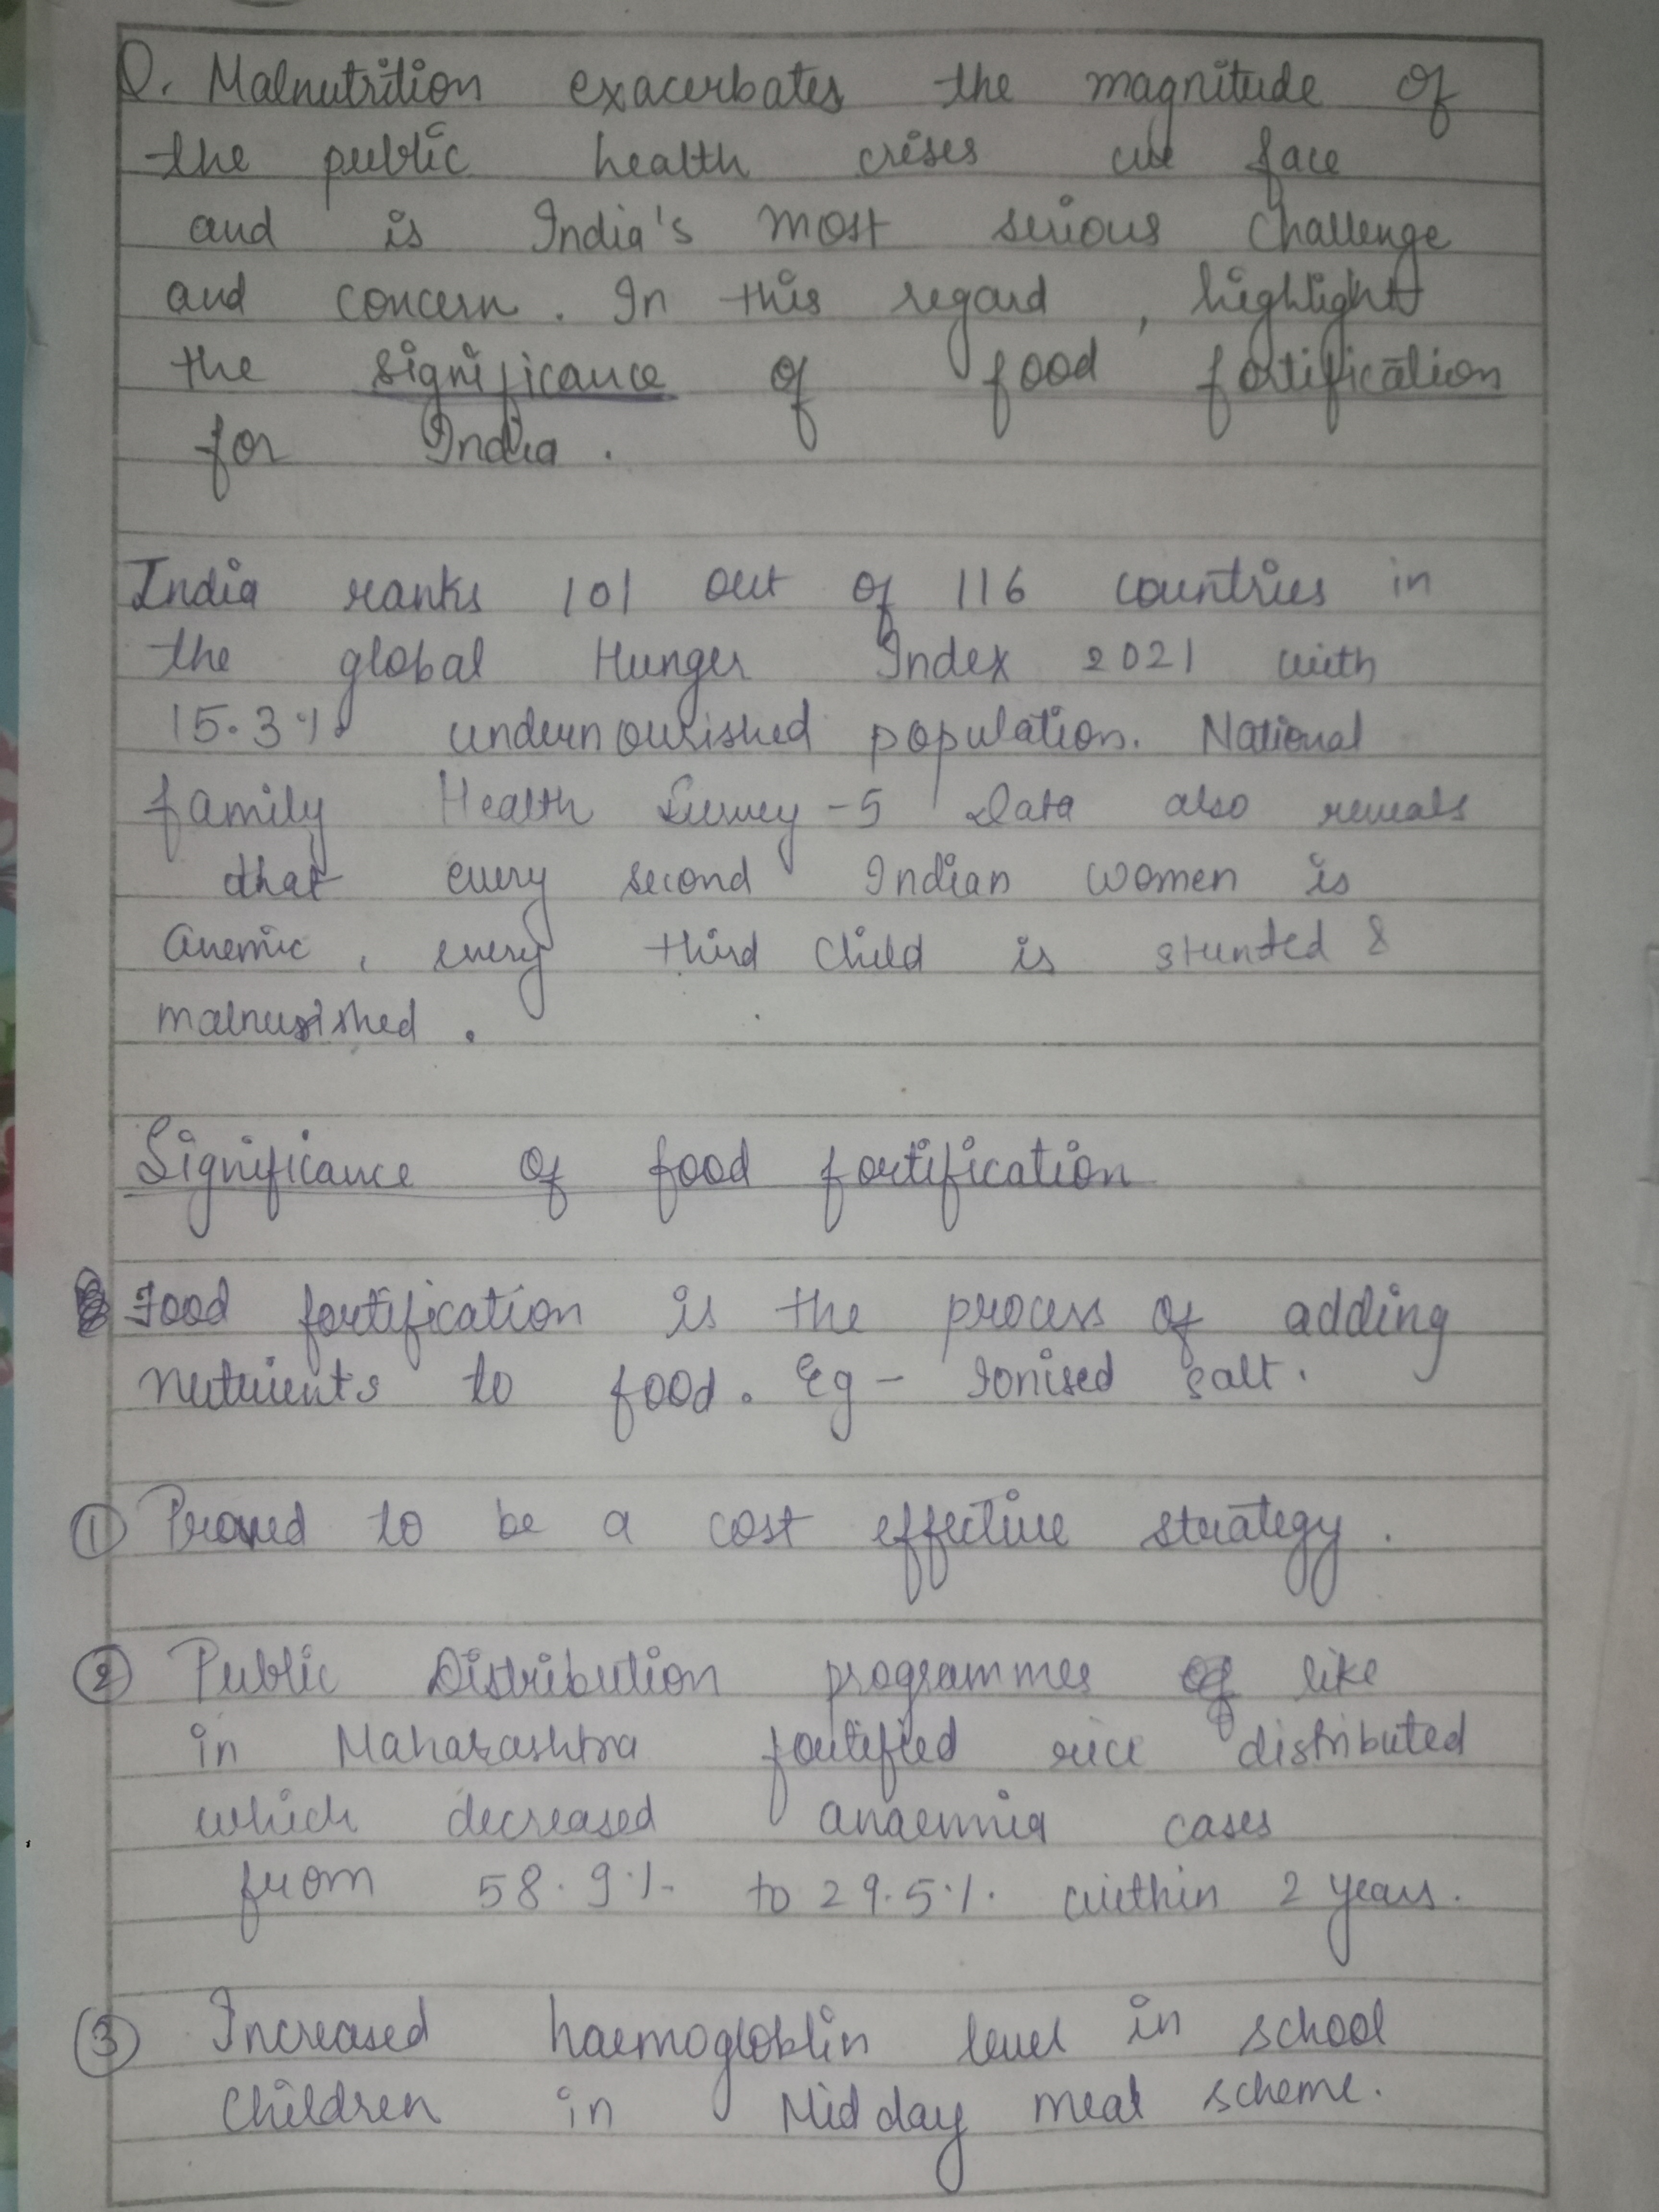 Q. Malnutrition exacerbates the magnitude of
the public health crises we face
and is India's most serious challenge
and concern. In this regard, highlight
the significance of food fortification
for India.
India ranks 101 out of 116 countries in
the global Hunger Index 2021 with
15.3% undernourished population. National
family Health Survey-5 Data also reveals
that every second Indian women is
Anemic, every third child is stunted &
malnurished.
Significance of food fortification
Food fortification is the process of adding
nutrients to food. Eg - Ionised salt.
① Proved to be a cost effective strategy.
② Public Distribution programmes like
in Maharashtra fortified rice distributed
which decreased anaemia cases
from 58.9% to 29.5% within 2 years.
③ Increased haemogloblin level in school
children in Mid day meal scheme.